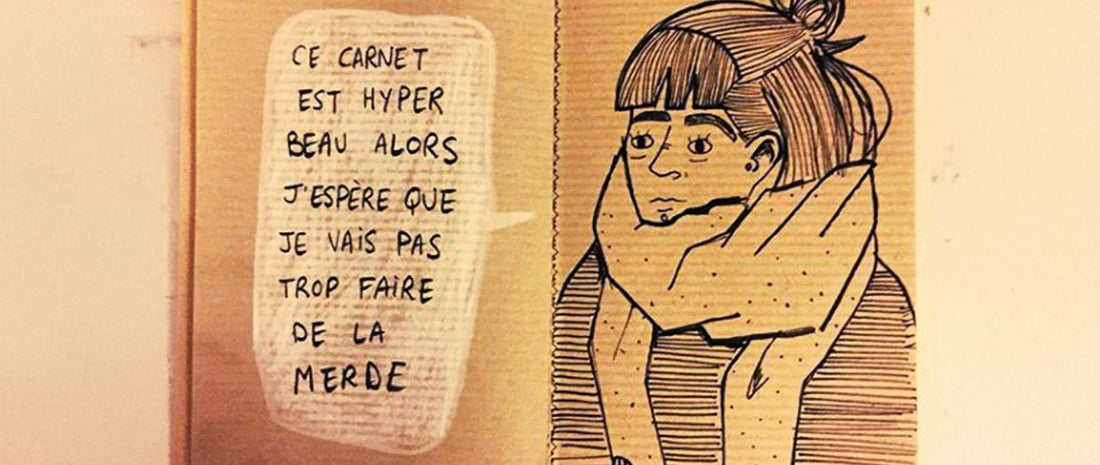 CE CARNET
EST HYPER
BEAU ALORS
J'ESPÈRE QUE
JE VAIS PAS
TROP FAIRE
DE LA
MERDE